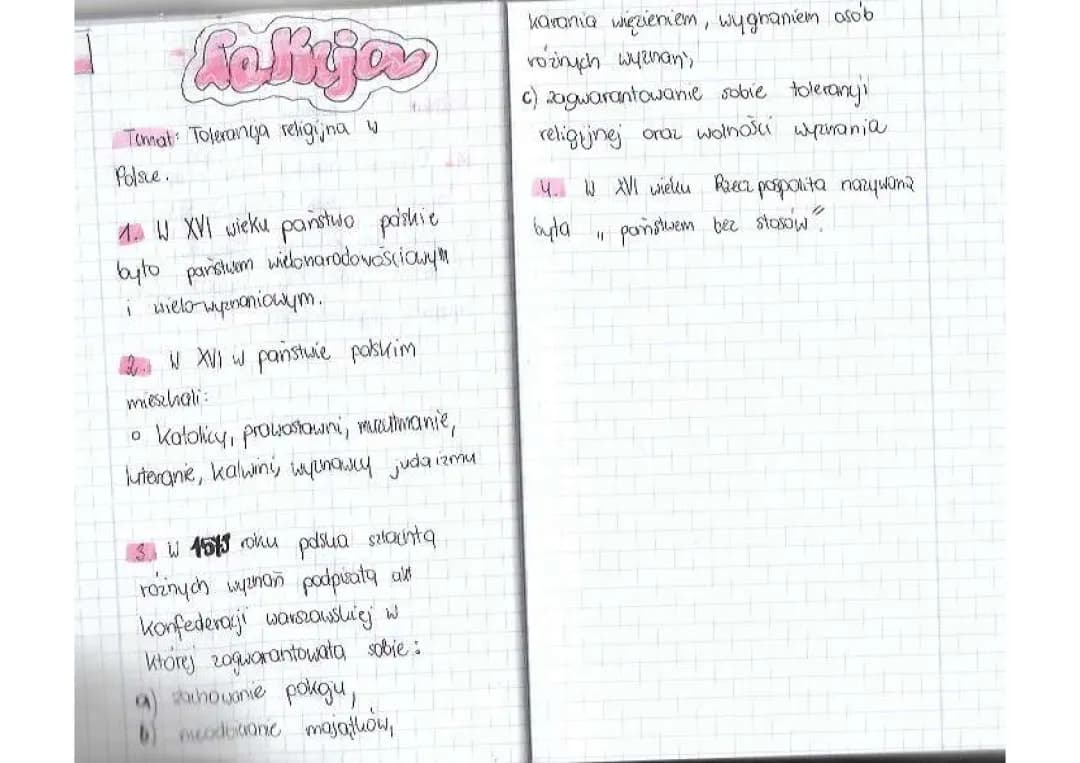 Lekcja
Temat: Tolerancja religijna w
Polsce.
1. W XVI wieku państwo polskie
było państwem wielonarodowościowym
i wielo-wyznaniowym.
2. W XVI w państwie polskim
mieszkali:
o Katolicy, prawosławni, muzułmanie,
luteranie, kalwini, wyznawcy judaizmu
3. W 1573 roku polska szlachta
różnych wyznań podpisała akt
konfederacji warszawskiej w
której zagwarantowała sobie:
a) zachowanie pokoju,
b) nieodbieranie majątków,
karania więzieniem, wygnaniem osób
różnych wyznań,
c) zagwarantowanie sobie tolerancji
religijnej oraz wolności wyznania
4. W XVI wieku Rzecz pospolita nazywana
była „państwem bez stosów".